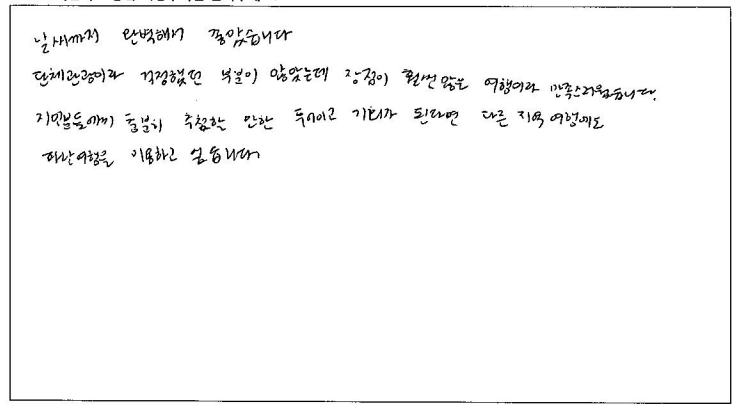 날씨까지 완벽해서 좋았습니다
단체관광이라 걱정했던 부분이 많았는데 장점이 훨씬 많은 여행이라 만족스러웠습니다.
지인분들에게 충분히 추천할 만한 투어이고 기회가 된다면 다른 지역 여행에도
하나여행을 이용하고 싶습니다.